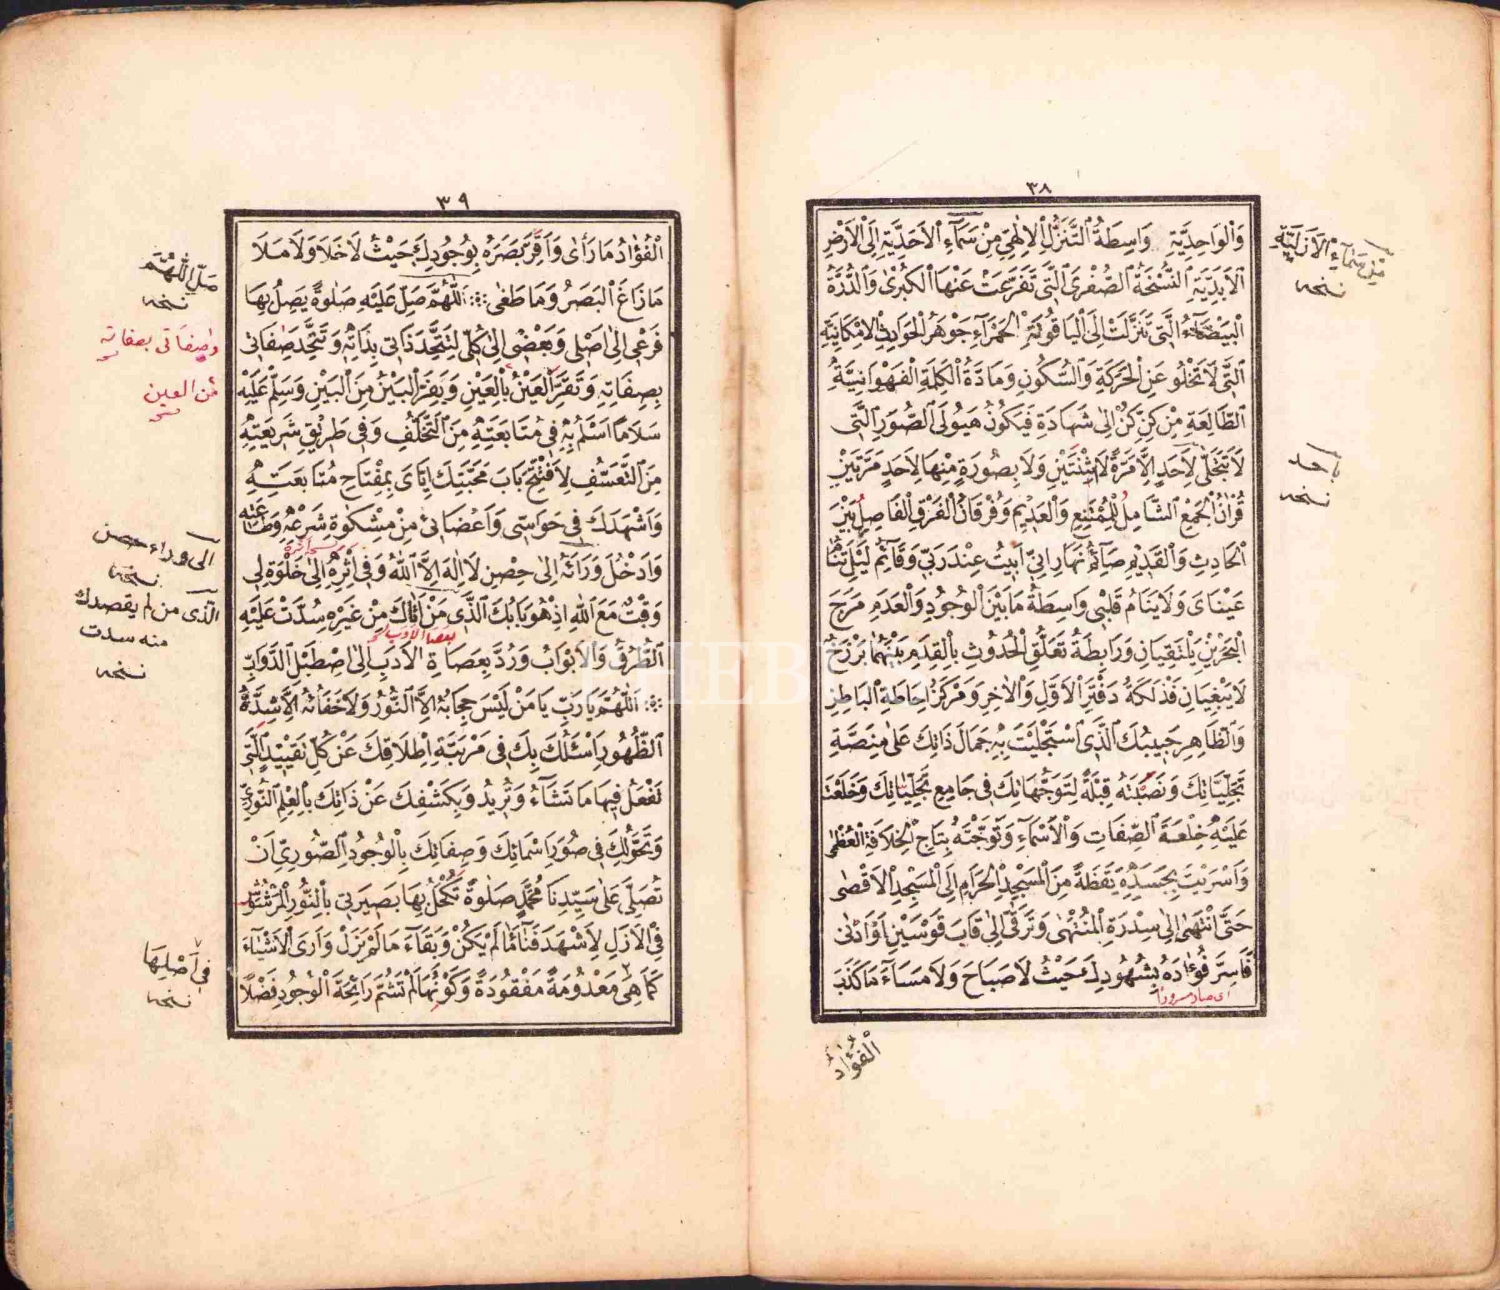 ٣٨
وَالْوَاحِدِيَّةِ وَاسِطَةُ التَّنَزُّلِ الْاِلٰهِيِّ مِنْ سَمَآءِ الْاَحَدِيَّةِ اِلَى الْاَرْضِ
الْاَبَدِيَّةِ النُّسْخَةُ الصُّغْرَى الَّتِى تَفَرَّعَتْ عَنْهَا الْكُبْرٰى وَالدُّرَّةُ
الْبَيْضَآءُ الَّتِى تَنَزَّلَتْ اِلَى الْيَاقُوتَةِ الْحَمْرَآءِ جَوْهَرُ الْحَوَادِثِ الْاِمْكَانِيَّةِ
الَّتِى لَا تَخْلُو عَنِ الْحَرَكَةِ وَالسُّكُونِ وَمَادَّةُ الْكَلِمَةِ الْفَهْوَانِيَّةِ
الطَّالِعَةِ مِنْ كِنِّ كُنْ اِلٰى شَهَادَةِ فَيَكُونُ هَيُولَى الصُّوَرِ الَّتِى
لَا تَتَجَلّٰى لِاَحَدٍ اِلَّا مَرَّةً لَا ثِنْتَيْنِ وَلَا بِصُورَةٍ مِنْهَا لِاَحَدٍ مَرَّتَيْنِ
قُرْاٰنُ الْجَمْعِ الشَّامِلِ لِلْمُمْتَنِعِ وَالْعَدِيمِ وَفُرْقَانُ الْفَرْقِ الْفَاصِلِ بَيْنَ
الْحَادِثِ وَالْقَدِيمِ صَآئِمُ نَهَارِ اِنِّى اَبِيتُ عِنْدَ رَبِّى وَقَآئِمُ لَيْلِ تَنَامُ
عَيْنَاىَ وَلَا يَنَامُ قَلْبِى وَاسِطَةُ مَا بَيْنَ الْوُجُودِ وَالْعَدَمِ مَرَجَ
الْبَحْرَيْنِ يَلْتَقِيَانِ وَرَابِطَةُ تَعَلُّقِ الْحُدُوثِ بِالْقِدَمِ بَيْنَهُمَا بَرْزَخٌ
لَا يَبْغِيَانِ فَذْلَكَةُ دَفْتَرِ الْاَوَّلِ وَالْاٰخِرِ وَمَرْكَزُ اِحَاطَةِ الْبَاطِنِ
وَالظَّاهِرِ حَبِيبُكَ الَّذِى اسْتَجْلَيْتَ بِهِ جَمَالَ ذَاتِكَ عَلٰى مِنَصَّةِ
تَجَلِّيَاتِكَ وَنَصَبْتَهُ قِبْلَةً لِتَوَجُّهَاتِكَ فِى جَامِعِ تَجَلِّيَاتِكَ وَخَلَعْتَ
عَلَيْهِ خِلْعَةَ الصِّفَاتِ وَالْاَسْمَآءِ وَتَوَّجْتَهُ بِتَاجِ الْخِلَافَةِ الْعُظْمٰى
وَاَسْرَيْتَ بِجَسَدِهِ يَقَظَةً مِنَ الْمَسْجِدِ الْحَرَامِ اِلَى الْمَسْجِدِ الْاَقْصٰى
حَتَّى انْتَهٰى اِلٰى سِدْرَةِ الْمُنْتَهٰى وَتَرَقّٰى اِلٰى قَابَ قَوْسَيْنِ اَوْ اَدْنٰى
فَاسِرَّ فُؤَادُهُ بِشُهُودِكَ حَيْثُ لَا صَبَاحَ وَلَا مَسَآءَ مَا كَذَبَ
اى صار مسرورا
الْفُؤَادُ
مِنْ سَمَآءِ الْاَزَلِيَّةِ
نسخه
بأحد
نسخه
٣٩
الْفُؤَادُ مَا رَاٰى وَاَقِرَّ بَصَرُهُ بِوُجُودِكَ حَيْثُ لَا خَلَا وَلَا مَلَا
مَا زَاغَ الْبَصَرُ وَمَا طَغٰى اَللّٰهُمَّ صَلِّ عَلَيْهِ صَلٰوةً يَصِلُ بِهَا
فَرْعِى اِلٰى اَصْلِى وَبَعْضِى اِلٰى كُلِّى لِتَتَّحِدَ ذَاتِى بِذَاتِهِ وَتَتَّحِدَ صِفَاتِى
بِصِفَاتِهِ وَتَقَرَّ الْعَيْنُ بِالْعَيْنِ وَيَفِرَّ الْبَيْنُ مِنَ الْبَيْنِ وَسَلِّمْ عَلَيْهِ
سَلَامًا اَسْلَمُ بِهِ فِى مُتَابَعَتِهِ مِنَ التَّخَلُّفِ وَفِى طَرِيقِ شَرِيعَتِهِ
مِنَ التَّعَسُّفِ لِاَفْتَتِحَ بَابَ مَحَبَّتِكَ اِيَّاىَ بِمِفْتَاحِ مُتَابَعَتِهِ
وَاَشْهَدَكَ فِى حَوَاسِّى وَاَعْضَائِى مِنْ مِشْكٰوةِ شَرْعِهِ وَطَاعَتِهِ
وَاَدْخُلَ وَرَائَهُ اِلٰى حِصْنِ لَا اِلٰهَ اِلَّا اللّٰهُ وَفِى اَثَرِهِ اِلٰى خَلْوَةِ لِى
وَقْتٌ مَعَ اللّٰهِ اِذْ هُوَ بَابُكَ الَّذِى مَنْ اَتَاكَ مِنْ غَيْرِهِ سُدَّتْ عَلَيْهِ
الطُّرُقُ وَالْاَبْوَابُ وَرُدَّ بِعَصَاةِ الْاَدَبِ اِلٰى اِصْطَبْلِ الدَّوَابِّ
بعصا الادب
اَللّٰهُمَّ يَا رَبِّ يَا مَنْ لَيْسَ حِجَابُهُ اِلَّا النُّورُ وَلَا خَفَائُهُ اِلَّا شِدَّةُ
الظُّهُورِ اَسْئَلُكَ بِكَ فِى مَرْتَبَةِ اِطْلَاقِكَ عَنْ كُلِّ تَقْيِيدٍ الَّتِى
تَفْعَلُ فِيهَا مَا تَشَآءُ وَتُرِيدُ وَبِكَشْفِكَ عَنْ ذَاتِكَ بِالْعِلْمِ النُّورِىِّ
وَتَحَوُّلِكَ فِى صُوَرِ اَسْمَائِكَ وَصِفَاتِكَ بِالْوُجُودِ الصُّورِىِّ اَنْ
تُصَلِّىَ عَلٰى سَيِّدِنَا مُحَمَّدٍ صَلٰوةً تَكْحَلُ بِهَا بَصِيرَتِى بِالنُّورِ الْمَرْشُوشِ
فِى الْاَزَلِ لِاَشْهَدَ فَنَآءَ مَا لَمْ يَكُنْ وَبَقَآءَ مَا لَمْ يَزَلْ وَاَرَى الْاَشْيَآءَ
كَمَا هِىَ مَعْدُومَةً مَفْقُودَةً وَكَوْنُهَا لَمْ تَشُمَّ رَائِحَةَ الْوُجُودِ فَضْلًا
صَلِّ اللّٰهُمَّ
نسخه
وصفاتى بصفاته
من العين
الى وراء حصن
نسخه
الَّذى من لم يقصدك
منه سدت
نسخه
فِى اَصْلِهَا
نسخه